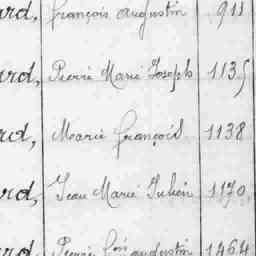 ard, françois augustin 911
ard, Pierre Marie Joseph 1135
ard, Marie françois 1138
ard, Jean Marie Julien 1170
ard, Pierre fois augustin 1464